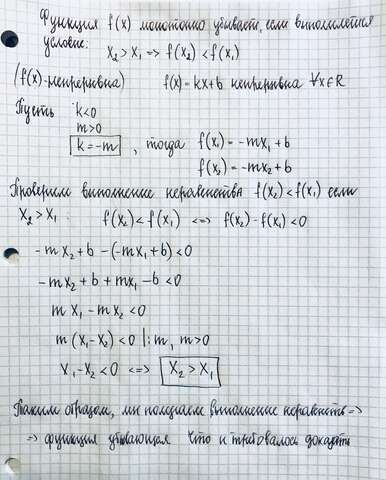 Функция f(x) монотонно убывает, если выполняется
условие:
x₂ > x₁ => f(x₂) < f(x₁)
(f(x) - непрерывна) f(x) = kx+b непрерывна ∀x∈R
Пусть k<0
m>0
k = -m , тогда f(x₁) = -mx₁+b
f(x₂) = -mx₂+b
Проверим выполнение неравенства f(x₂)<f(x₁) если
x₂ > x₁ : f(x₂) < f(x₁) <=> f(x₂)-f(x₁)<0
-mx₂+b -(-mx₁+b)<0
-mx₂+b+mx₁-b<0
mx₁-mx₂<0
m(x₁-x₂)<0 |:m, m>0
x₁-x₂<0 <=> x₂ > x₁
Таким образом, мы получаем выполнение неравенств =>
=> функция убывающая что и требовалось доказать